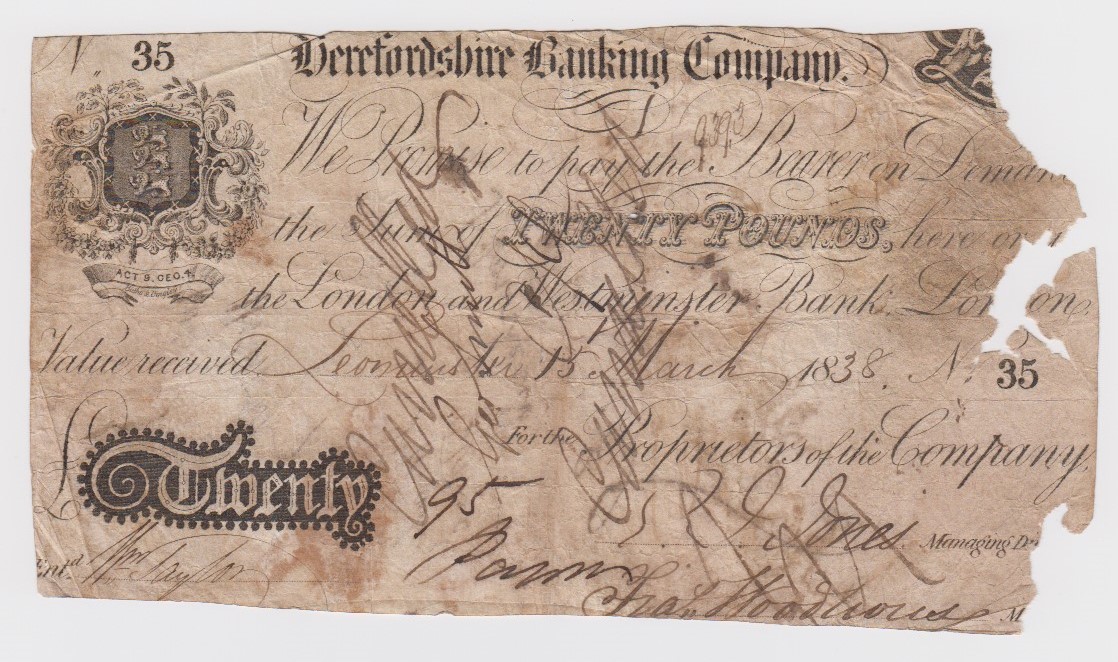 N 35 Herefordshire Banking Company.
9393
We Promise to pay the Bearer on Deman
the Sum of TWENTY POUNDS, here or
ACT 9. GEO. 4.
the London and Westminster Bank, London,
Value received Leominster 15 March 1838. No. 35
For the Proprietors of the Company,
£ Twenty
95
Jones Managing Di
Ent.d Wm Taylor
Fra. Woodhouse M